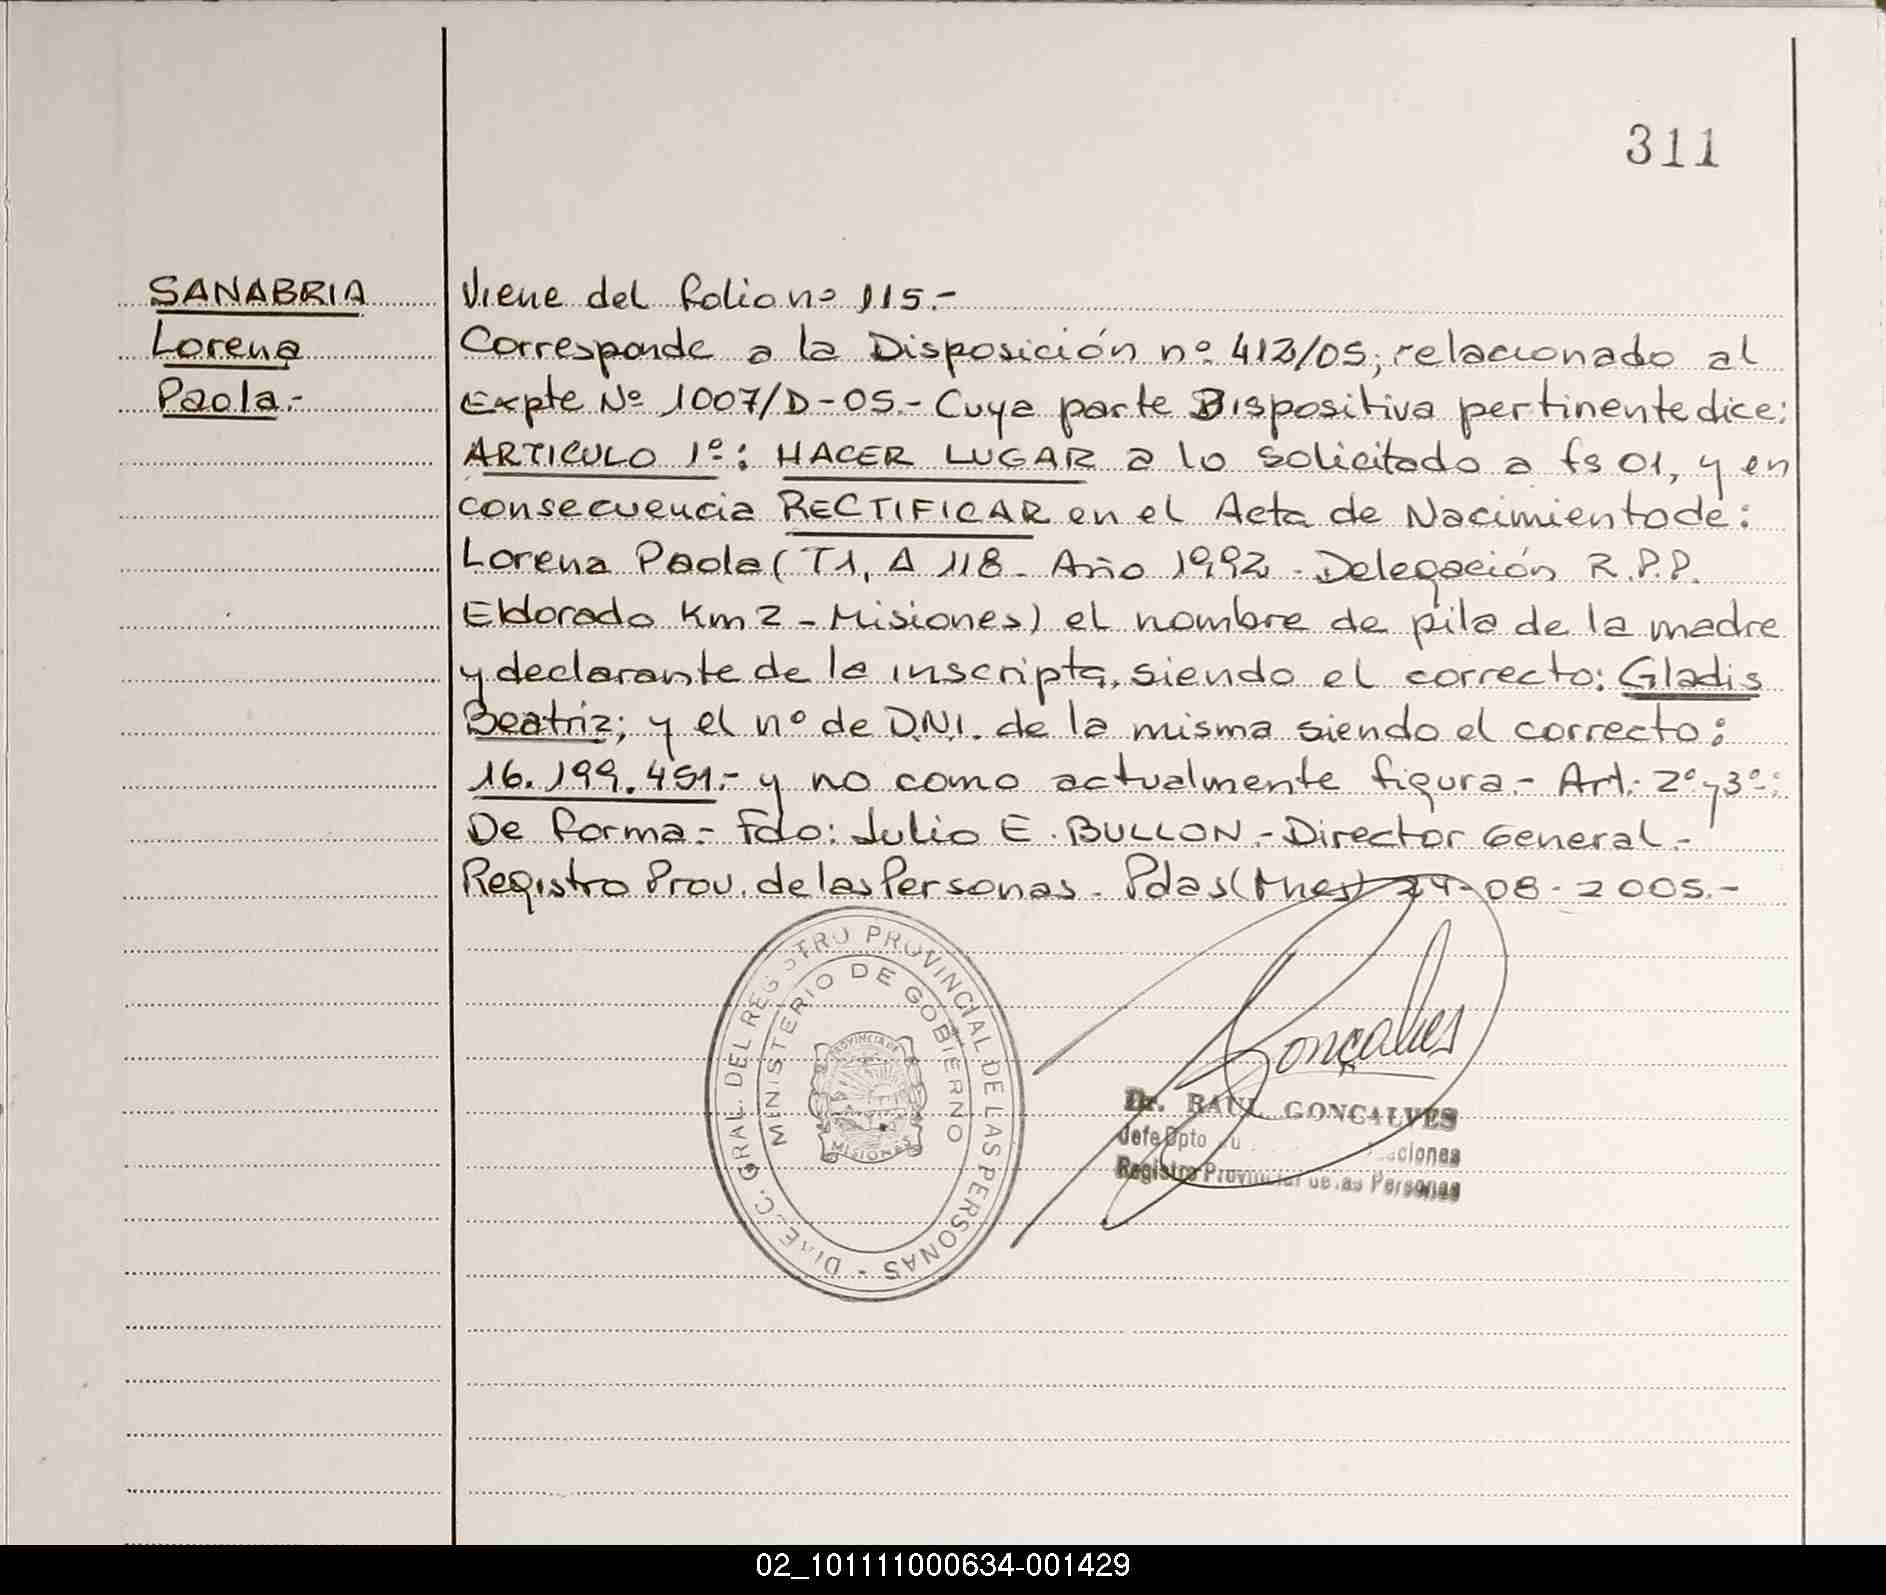 311
SANABRIA
Lorena
Paola.-
Viene del folio nº 115.-
Corresponde a la Disposición nº 412/05, relacionado al
Expte Nº 1007/D-05.- Cuya parte Dispositiva pertinente dice:
ARTICULO 1º: HACER LUGAR a lo solicitado a fs 01, y en
consecuencia RECTIFICAR en el Acta de Nacimiento de:
Lorena Paola (T1, A 118. Año 1992 - Delegación R.P.P.
Eldorado Km 2 - Misiones) el nombre de pila de la madre
y declarante de la inscripta, siendo el correcto: Gladis
Beatriz; y el nº de D.N.I. de la misma siendo el correcto:
16.199.451.- y no como actualmente figura.- Art.: 2º y 3º:
De forma.- Fdo: Julio E. BULLON.- Director General.-
Registro Prov. de las Personas. Pdas (Mnes) 24-08-2005.-
DIREC. GRAL. DEL REGISTRO PROVINCIAL DE LAS PERSONAS -
MINISTERIO DE GOBIERNO
PROVINCIA DE
MISIONES
Gonçalves
Dr. RAUL GONCALVES
Jefe Dpto
Registro Provincial de las Personas
02_101111000634-001429